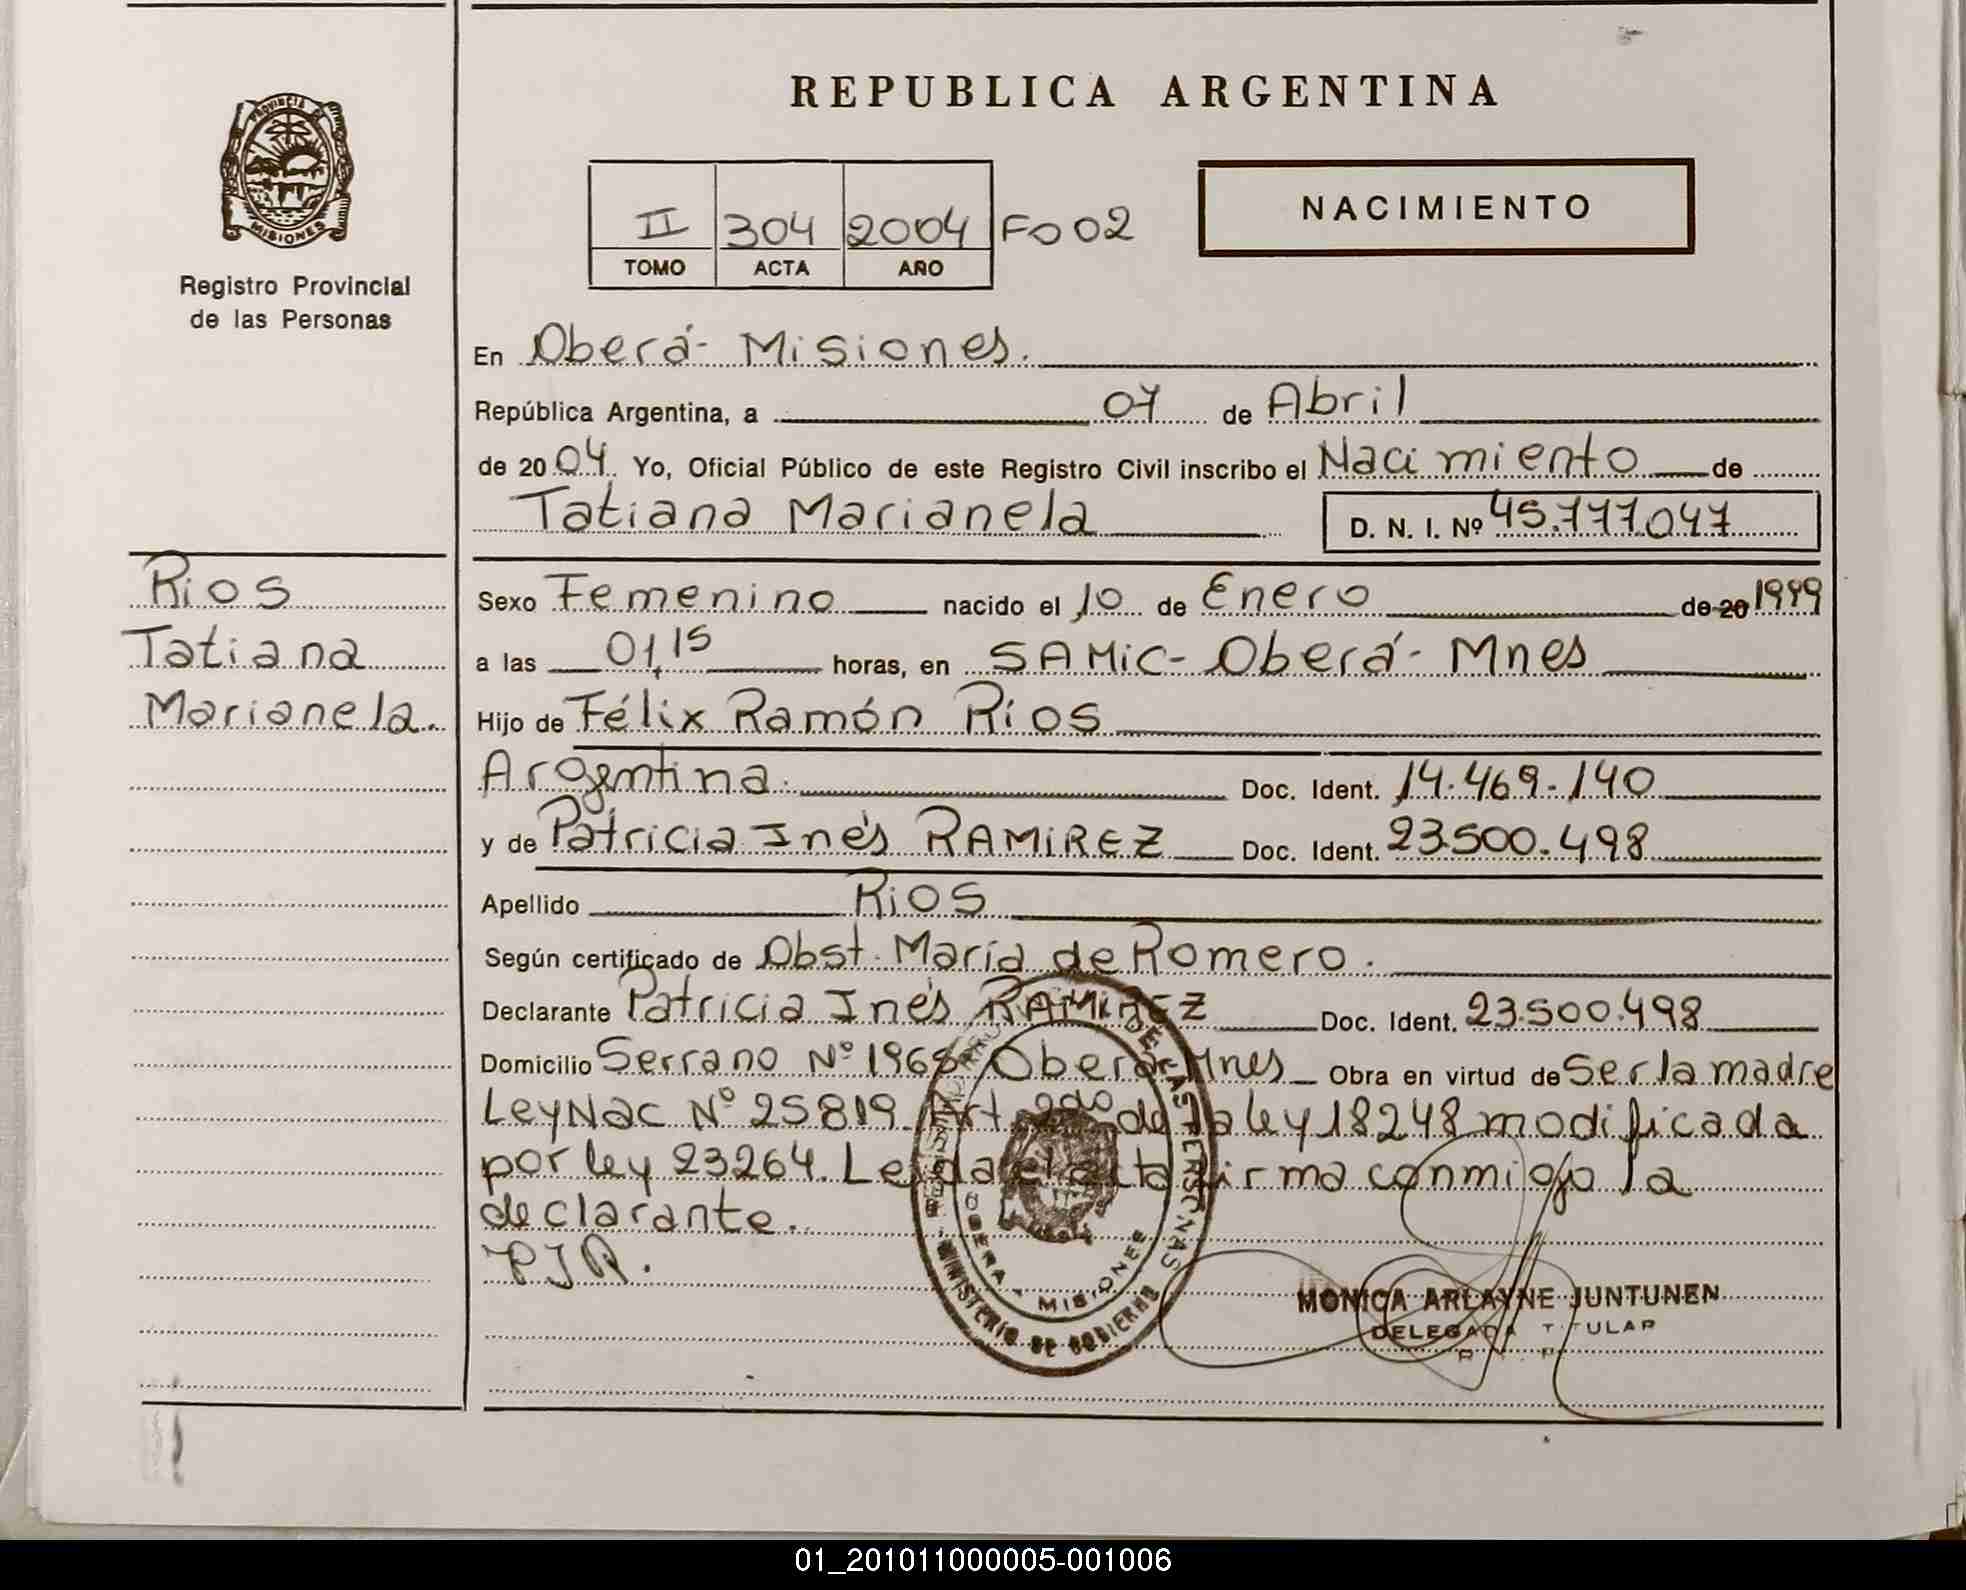 REPUBLICA ARGENTINA
PROVINCIA
MISIONES
Registro Provincial
de las Personas
II 304 2004 Fo 02
TOMO ACTA AÑO
NACIMIENTO
En Oberá- Misiones.
República Argentina, a 07 de Abril
de 2004. Yo, Oficial Público de este Registro Civil inscribo el Nacimiento de
Tatiana Marianela D. N. I. Nº 45.777.047
Rios
Tatiana
Marianela.
Sexo Femenino nacido el 10 de Enero de 20 1999
a las 01,15 horas, en SAMiC- Oberá- Mnes
Hijo de Félix Ramón Ríos
Argentina. Doc. Ident. 14.469.140
y de Patricia Inés RAMIREZ Doc. Ident. 23.500.498
Apellido Rios
Según certificado de Obst. María de Romero.
Declarante Patricia Inés RAMIREZ Doc. Ident. 23.500.498
Domicilio Serrano Nº 1968 Oberá Mnes Obra en virtud de Ser la madre
Ley Nac Nº 25819. Art. 2do de la ley 18248 modificada
por ley 23264. Leida el acta firma conmigo la
declarante.
PJR.
DE LAS PERSONAS
OBERA - MISIONES
MINISTERIO DE GOBIERNO
MONICA ARLAYNE JUNTUNEN
DELEGADA TITULAR
01_201011000005-001006